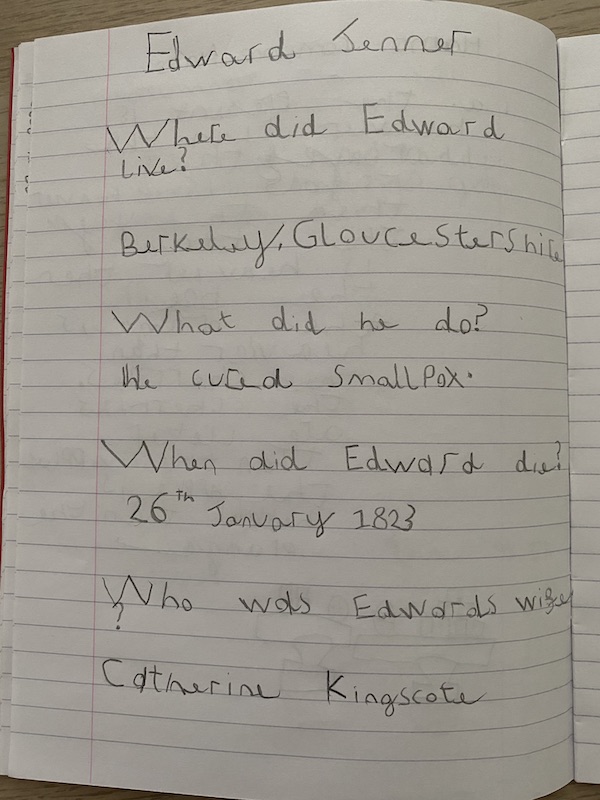 Edward Jenner
Where did Edward
live?
Berkeley, Gloucestershire
What did he do?
He cured Smallpox.
When did Edward die?
26th January 1823
Who was Edwards wife
?
Catherine Kingscote